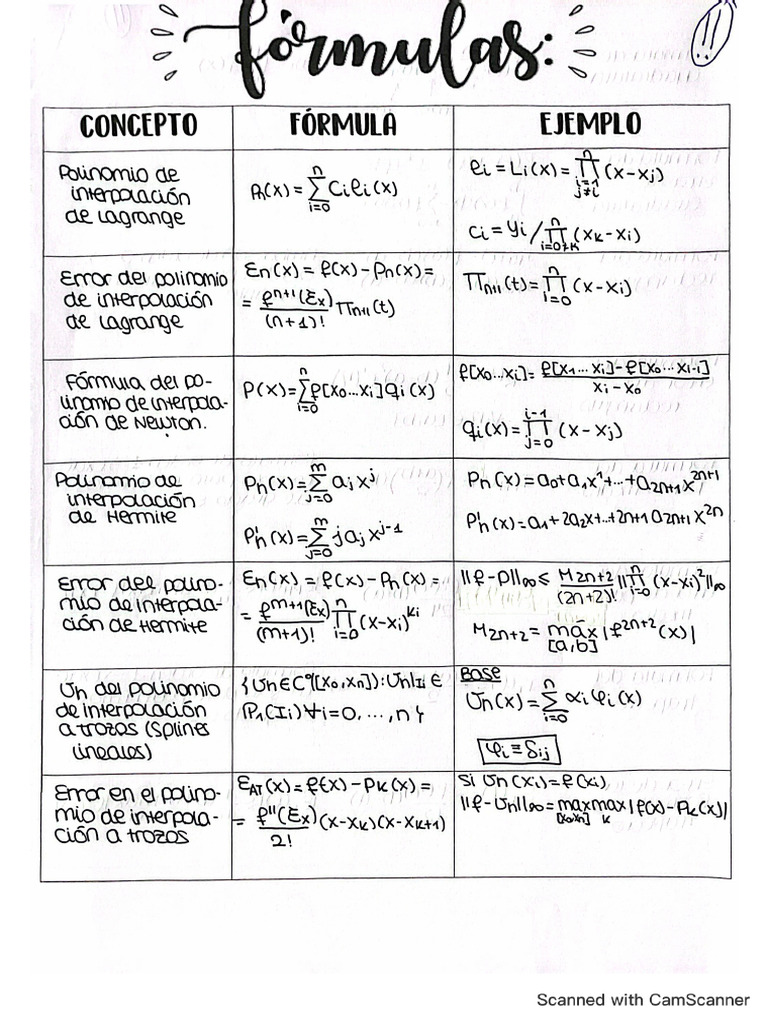 fórmulas:
!!
CONCEPTO
FÓRMULA
EJEMPLO
Polinomio de
interpolación
de Lagrange
Pₙ(x) = ∑ᵢ₌₀ⁿ Cᵢℓᵢ(x)
ℓᵢ = Lᵢ(x) = ∏ⁿ_{i=1, j≠i} (x-xⱼ)
Cᵢ = yᵢ / ∏ⁿ_{i=0≠k} (xₖ-xᵢ)
Error del polinomio
de interpolación
de Lagrange
Eₙ(x) = f(x) - Pₙ(x) =
= fⁿ⁺¹(Ɛₓ)/(n+1)! ∏ₙ₊₁(t)
∏ₙ₊₁(t) = ∏ᵢ₌₀ⁿ (x-xᵢ)
Fórmula del po-
linomio de interpola-
ción de Newton.
P(x) = ∑ᵢ₌₀ⁿ f[x₀...xᵢ] qᵢ(x)
f[x₀...xᵢ] = f[x₁...xᵢ]-f[x₀...xᵢ₋₁] / xᵢ-x₀
qᵢ(x) = ∏ⱼ₌₀ⁱ⁻¹ (x-xⱼ)
Polinomio de
interpolación
de Hermite
Pₙ(x) = ∑ⱼ₌₀ᵐ aⱼxʲ
P'ₙ(x) = ∑ⱼ₌₀ᵐ jaⱼxʲ⁻¹
Pₙ(x) = a₀+a₁x¹+...+a₂ₙ₊₁x²ⁿ⁺¹
P'ₙ(x) = a₁+2a₂x+...+2n+1 a₂ₙ₊₁x²ⁿ
Error del polino-
mio de interpola-
ción de Hermite
Eₙ(x) = f(x) - Pₙ(x) =
= fᵐ⁺¹(Ɛₓ)/(m+1)! ∏ᵢ₌₀ⁿ (x-xᵢ)ᵏⁱ
||f-p||∞ ≤ M₂ₙ₊₂/(2n+2)! ||∏ᵢ₌₀ⁿ (x-xᵢ)²||∞
M₂ₙ₊₂ = máx_[a,b] |f²ⁿ⁺²(x)|
Un del polinomio
de interpolación
a trozos (splines
lineales)
{Uₙ∈C⁰([x₀,xₙ]):Uₙ|Iᵢ ∈
P₁(Iᵢ) ∀i=0,...,n}
Base
Uₙ(x) = ∑ᵢ₌₀ⁿ αᵢφᵢ(x)
φᵢ ≡ δᵢⱼ
Error en el polino-
mio de interpola-
ción a trozos
E_AT(x) = f(x) - Pₖ(x) =
= f''(Ɛₓ)/2! (x-xₖ)(x-xₖ₊₁)
Si Uₙ(xᵢ) = f(xᵢ)
||f-Uₙ||∞ = max_[x₀,xₙ] max_k |f(x)-Pₖ(x)|
Scanned with CamScanner